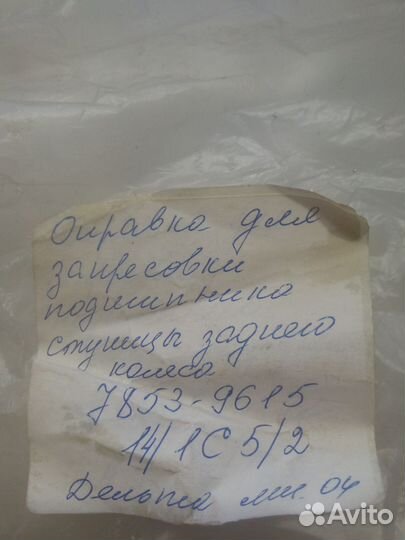 Оправка для
запресовки
подшипника
ступицы заднего
колеса
7853-9615
14/1С5/2
Дельта мн. 04
Avito